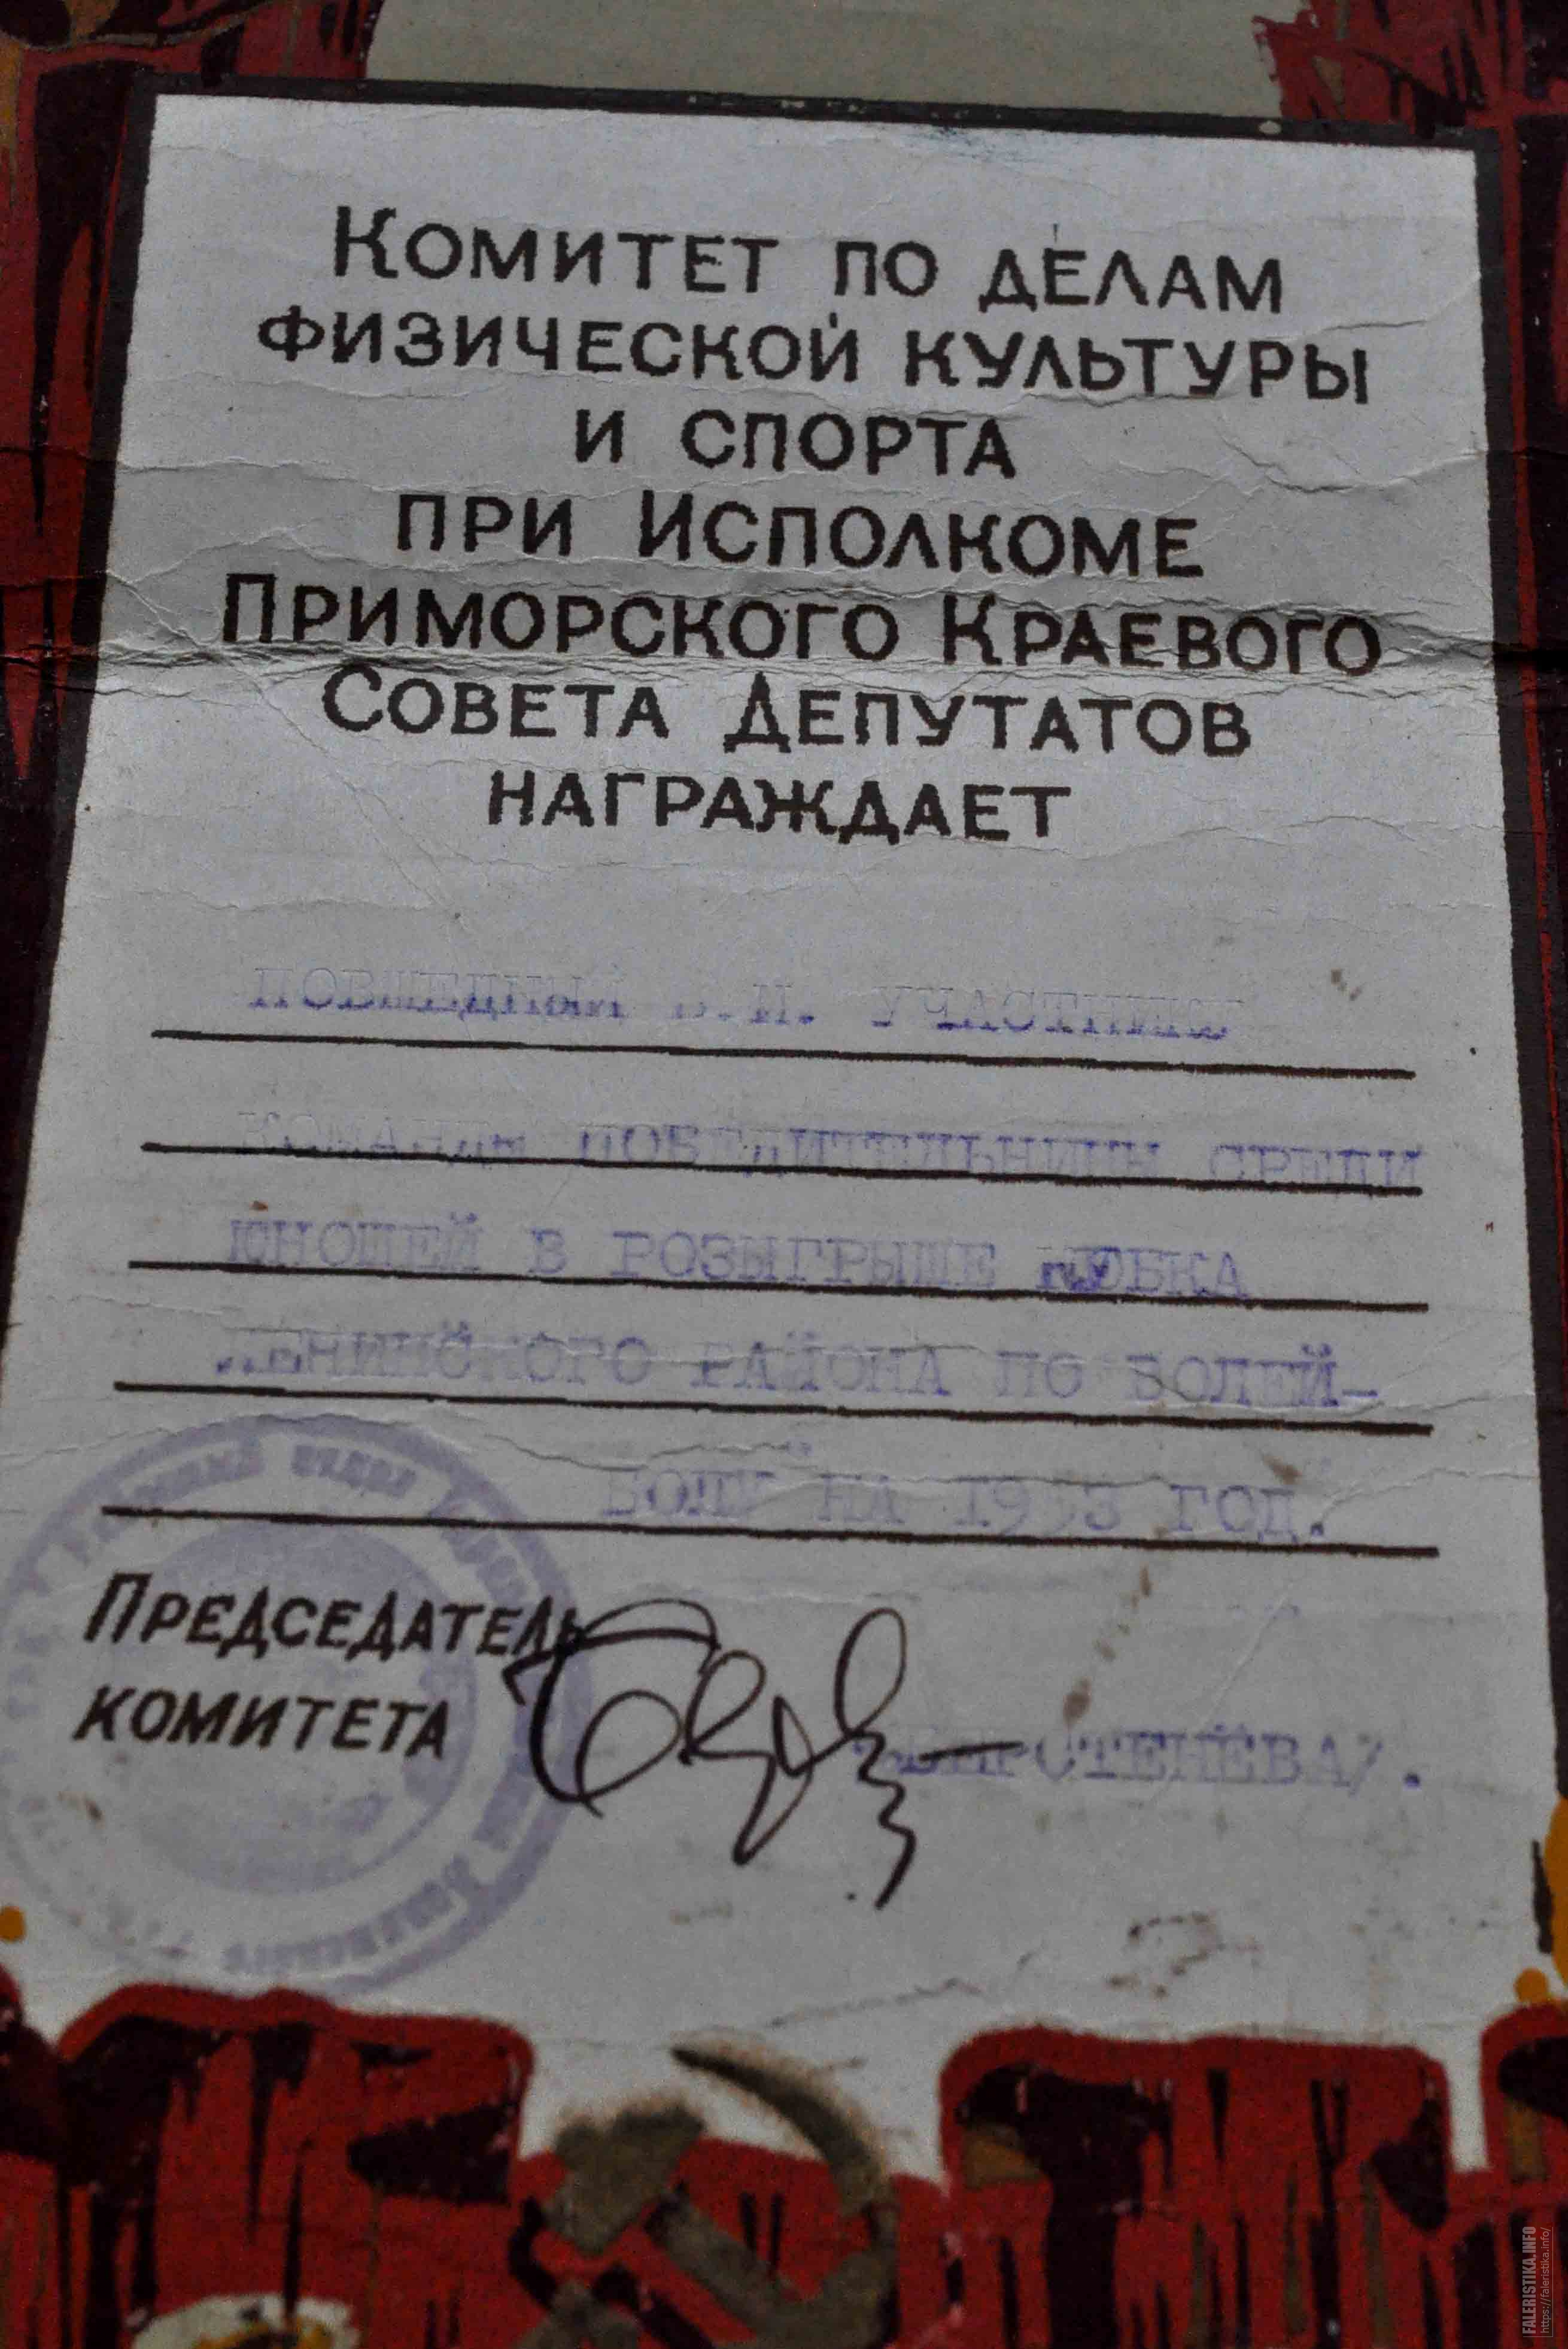 Комитет по делам
физической культуры
и спорта
при Исполкоме
Приморского Краевого
Совета Депутатов
награждает
И. УЧАСТНИКА
КОМАНДЫ ПОБЕДИТЕЛЬНИЦЫ СРЕДИ
ЮНОШЕЙ В РОЗЫГРЫШЕ КУБКА
ЛЕНИНСКОГО РАЙОНА ПО ВОЛЕЙ-
БОЛУ НА ГОД.
Председатель
комитета
FALERISTIKA.INFO
https://faleristika.info/